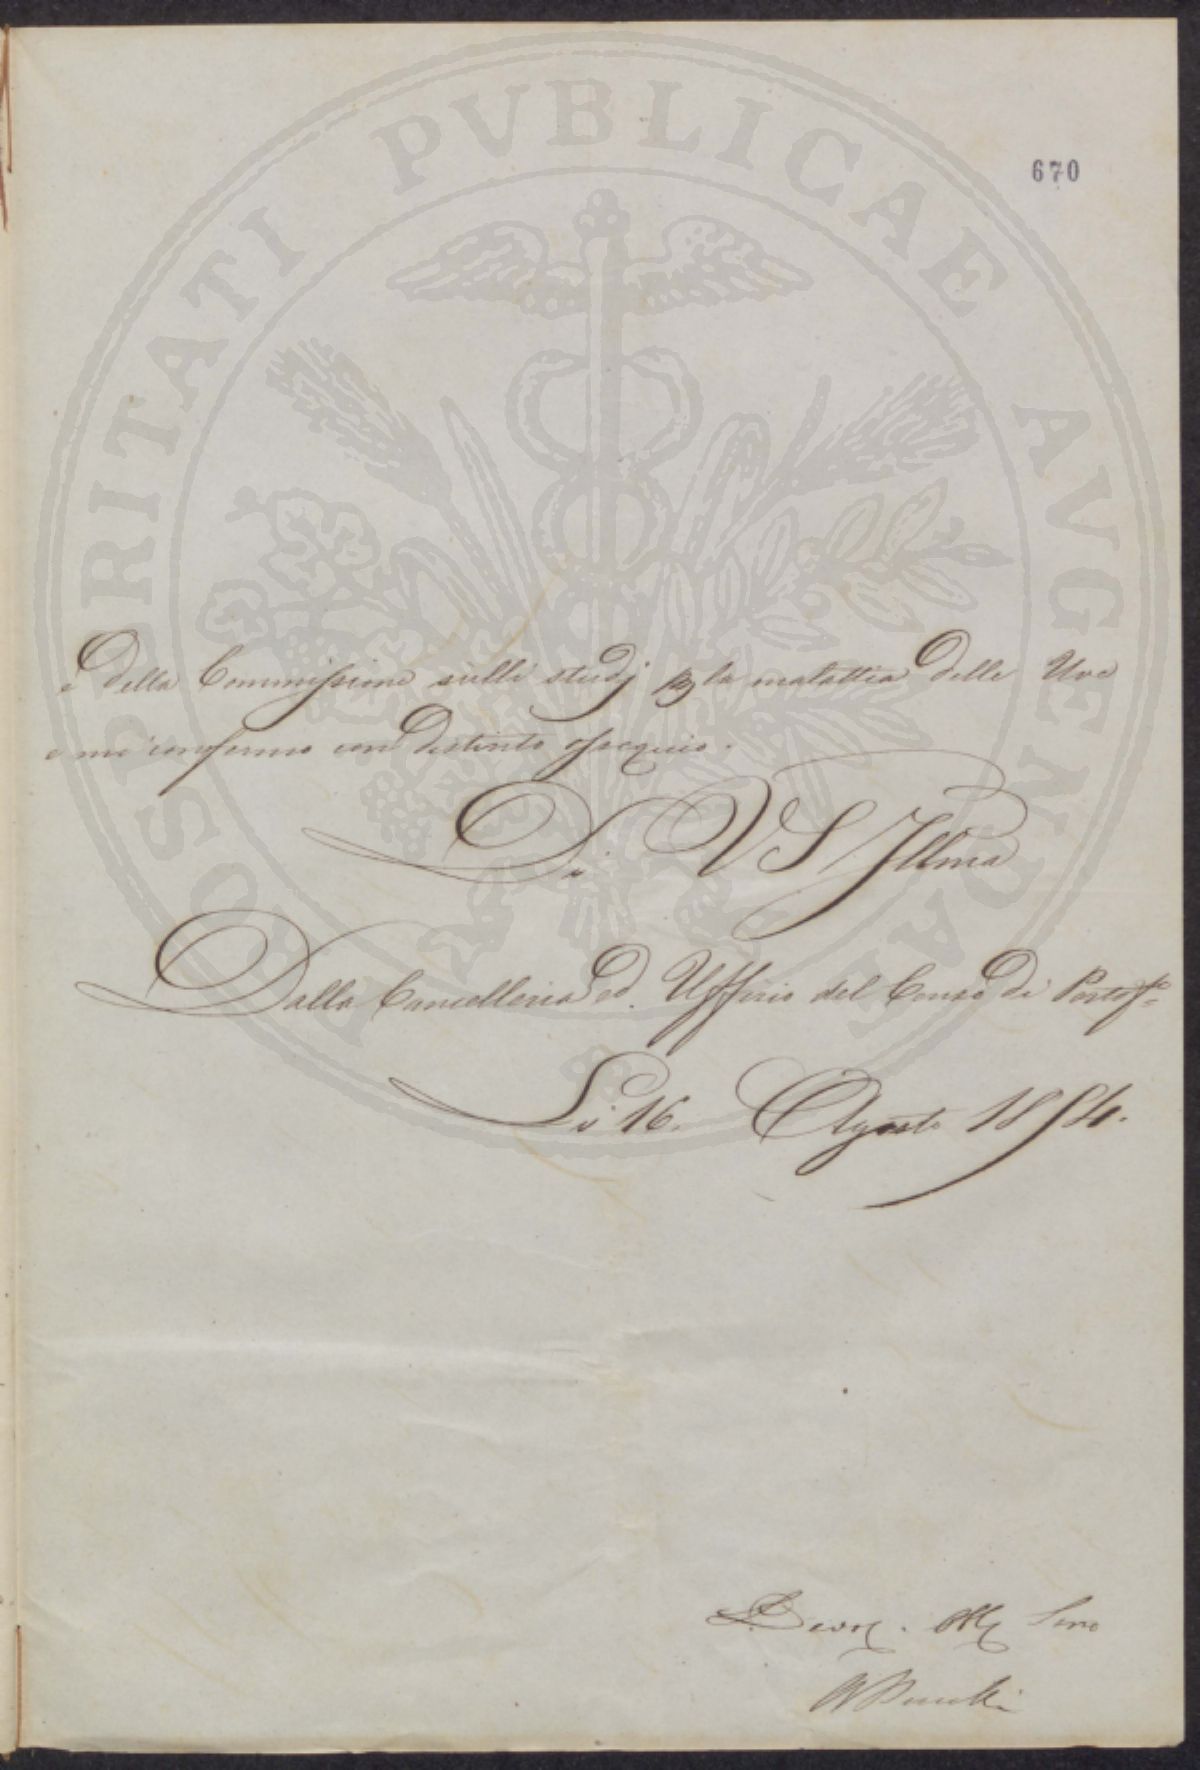 PROSPERITATI PVBLICAE AVGENDAE
670
e della Commissione sulli studj per la malattia delle Uve
e mi confermo con distinto ossequio.
Di V S Illma
Dalla Cancelleria ed Uffizio del Censo di Portofo
Li 16. Agosto 1854.
Devot. Obb Serv